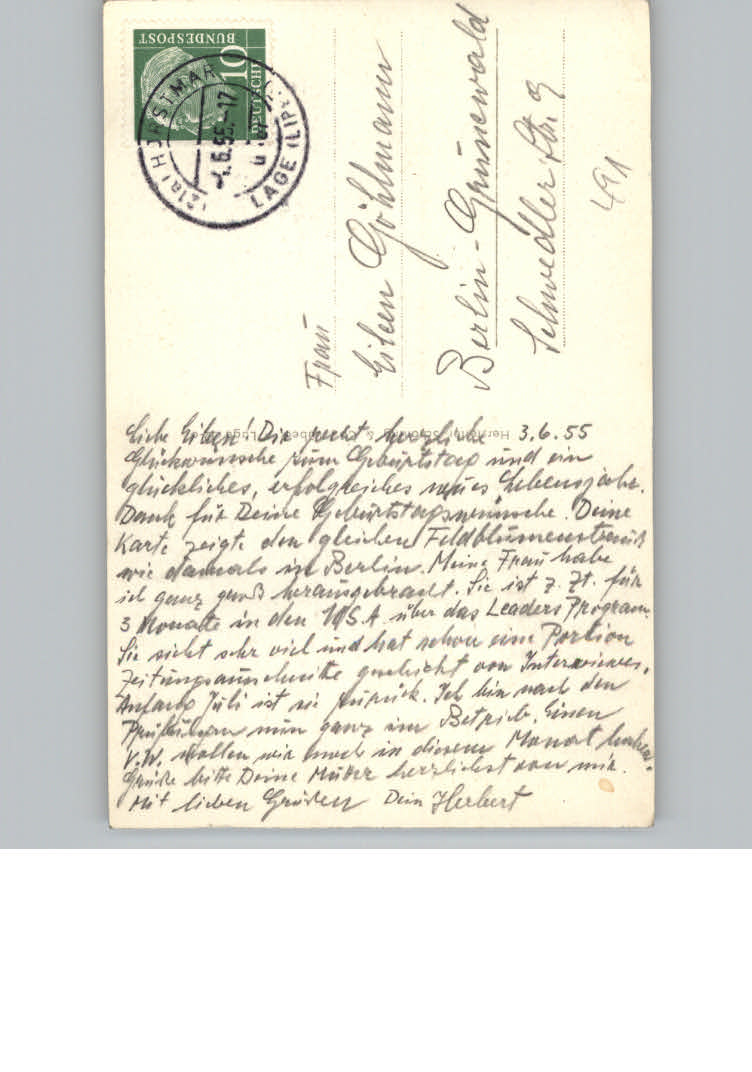 BUNDESPOST
10
DEUTSCHE
(21a) HORSTMAR
LAGE (LIPPE)
-4.6.55.-17
Frau
Eileen Göhlmann
Berlin-Grunewald
Schwedlerstr. 9
491
Liebe Eileen! Die recht herzliche 3.6.55
Glückwünsche zum Geburtstag und ein
glückliches, erfolgreiches neues Lebensjahr.
Dank für Deine Geburtstagswünsche. Deine
Karte zeigte den gleichen Feldblumenstrauß
wie damals in Berlin. Meine Frau habe
ich ganz groß herausgebracht. Sie ist z. Zt. für
3 Monate in den USA über das Leaders Program.
Sie sieht sehr viel und hat schon eine Portion
Zeitungsausschnitte geschickt von Interviews.
Anfang Juli ist sie zurück. Ich bin nach den
Prüfungen nun ganz im Betrieb. Einen
V.W. wollen wir noch in diesem Monat haben.
Grüße bitte Deine Mutter herzlichst von mir.
Mit lieben Grüßen Dein Herbert